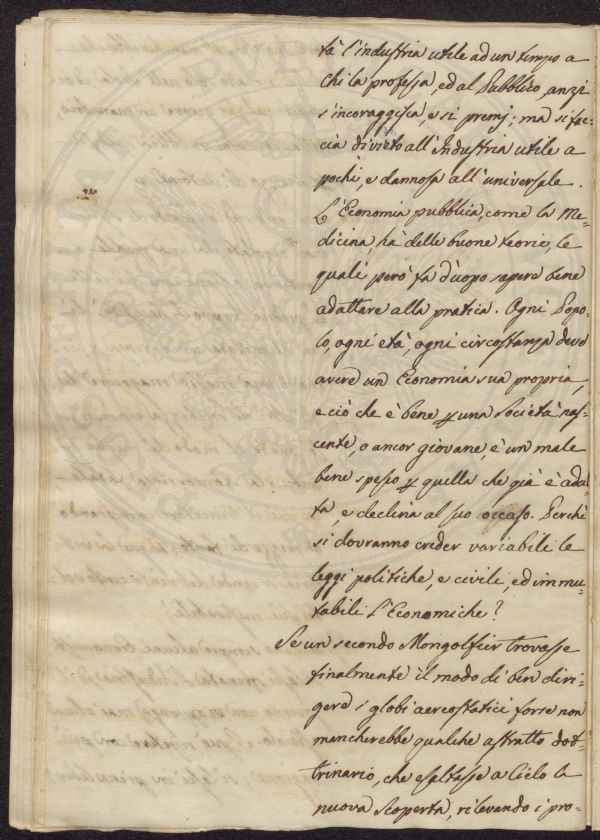 tà l'industria utile ad un tempo a
chi la professa, ed al Pubblico, anzi
s'incoraggisca, e si premj; ma si fac-
cia divieto all'Industria utile a
pochi, e dannosa all'universale.
L'Economia pubblica, come la Me-
dicina, hà delle buone teorie, le
quali però fà d'uopo sapere bene
adattare alla pratica. Ogni Popo-
lo, ogni età, ogni circostanza deve
avere un Economia sua propria,
e ciò che è bene p una società nas-
cente, o ancor giovane, è un male
bene spesso p quella che già è adul-
ta, e declina al suo occaso. Perchè
si dovranno creder variabili le
leggi politiche, e civili, ed immu-
tabili l'Economiche?
Se un secondo Mongolfier trovasse
finalmente il modo di ben diri-
gere i globi aereostatici forse non
mancherebbe qualche astratto dot-
trinario, che esaltasse a Cielo la
nuova scoperta, rilevando i pro-